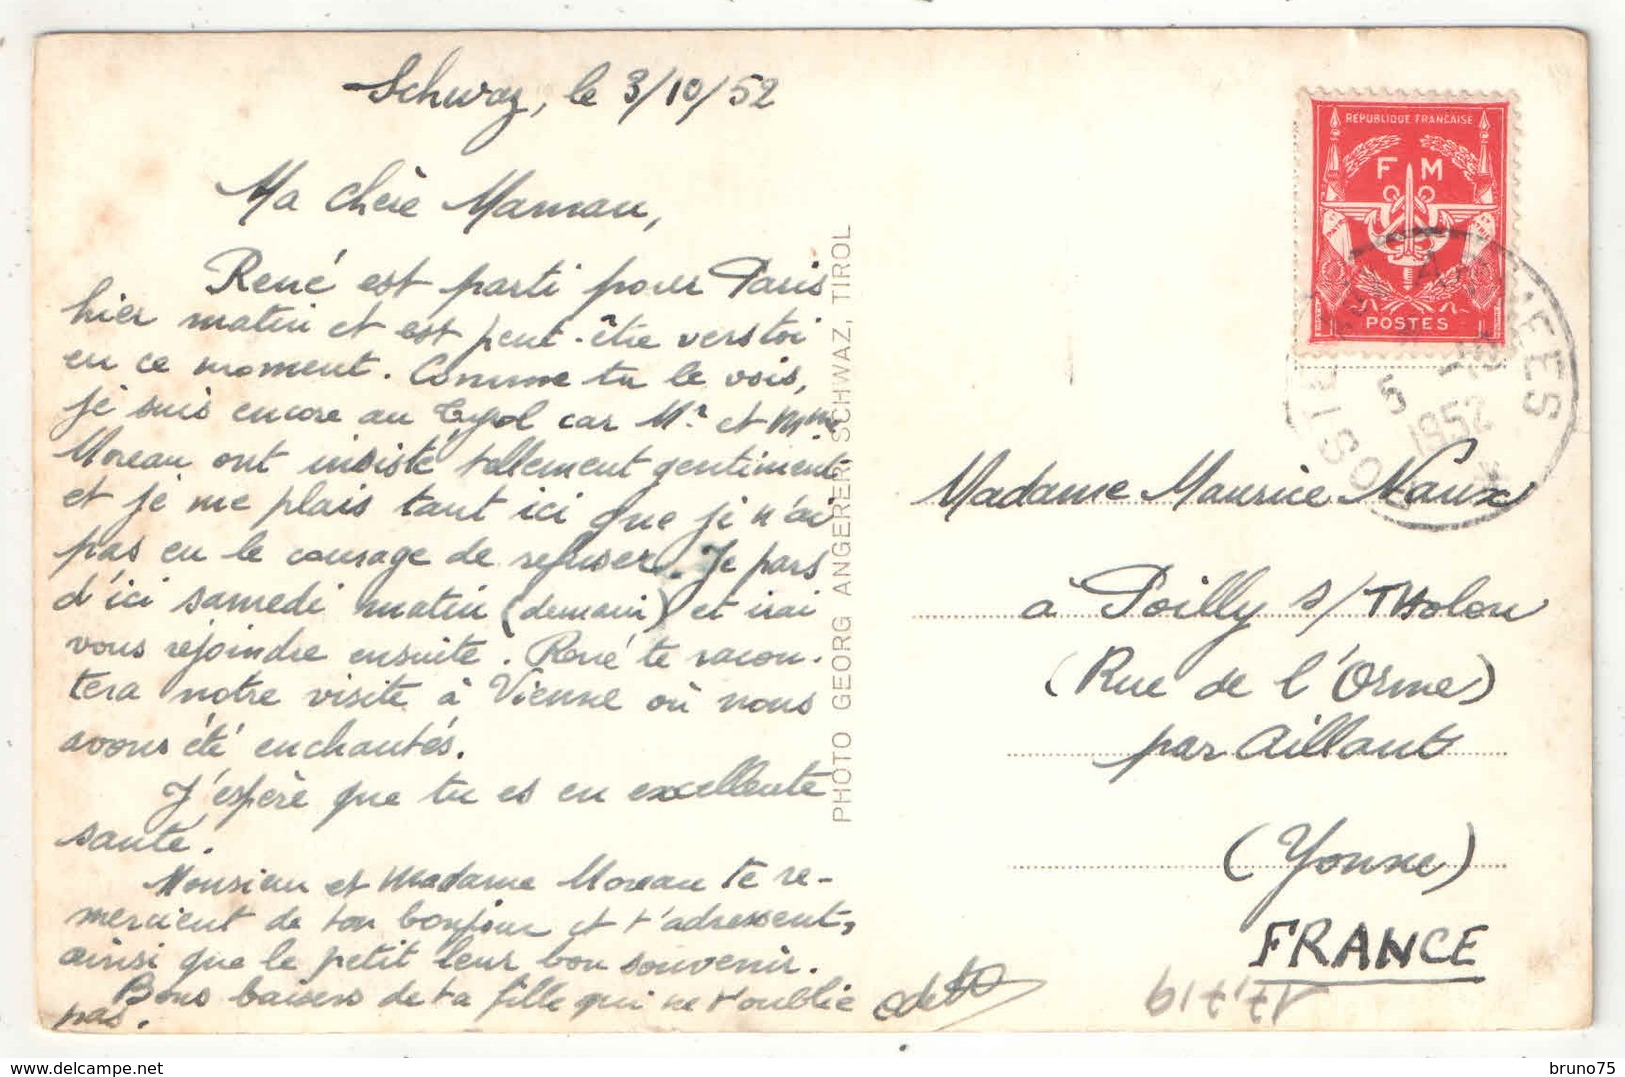 Schwaz, le 3/10/52
Ma chère Maman,
René est parti pour Paris
hier matin et est peut-être vers toi
en ce moment. Comme tu le vois,
je suis encore au Tyrol car Mr et Mme
Moreau ont insisté tellement gentiment
et je me plais tant ici que je n'ai
pas eu le courage de refuser. Je pars
d'ici samedi matin (demain) et irai
vous rejoindre ensuite. René te racon-
tera notre visite à Vienne où nous
avons été enchantés.
J'espère que tu es en excellente
santé.
Monsieur et Madame Moreau te re-
mercient de ton bonjour et t'adressent,
ainsi que le petit leur bon souvenir.
Bons baisers de ta fille qui ne t'oublie
pas.
PHOTO GEORG ANGERER, SCHWAZ, TIROL
REPUBLIQUE FRANÇAISE
F M
POSTES
POSTE AUX ARMEES
5
1952
Madame Maurice Naux
à Poilly s/ Tholon
(Rue de l'Orme)
par Aillant
(Yonne)
FRANCE
bruno75
delcampe.net